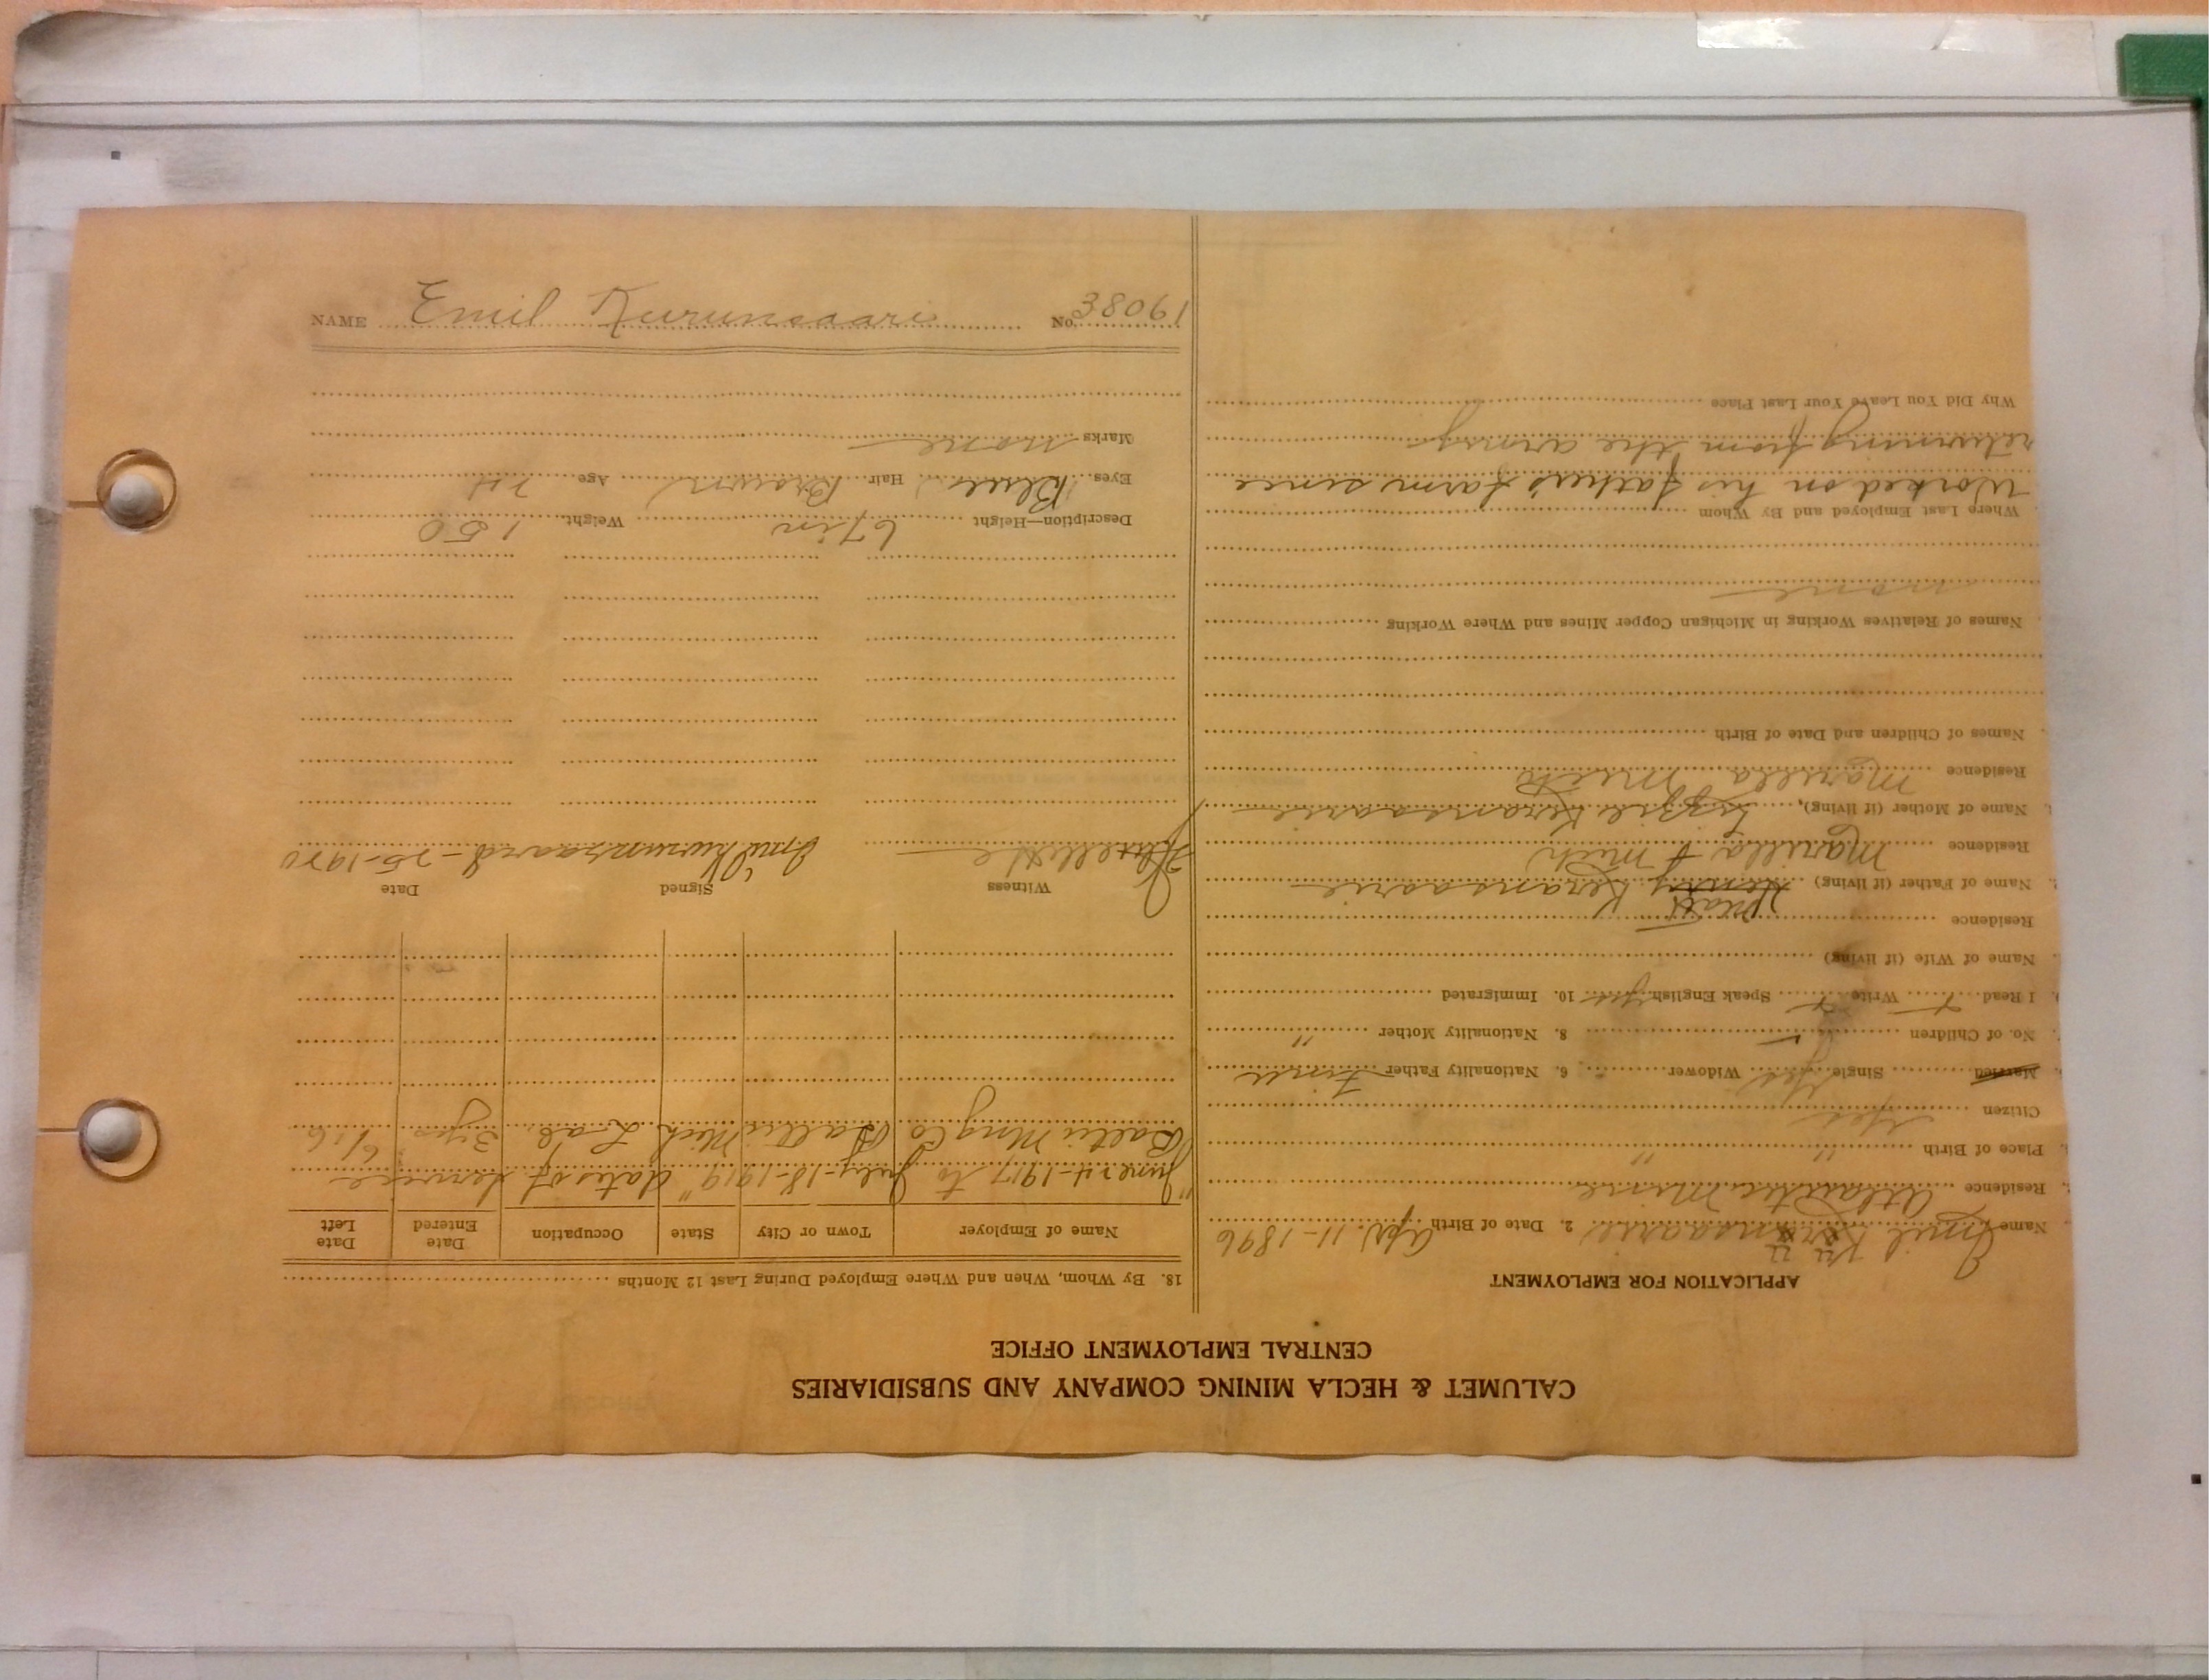 NAME Emil Kurunsaari No. 38061
CALUMET & HECLA MINING COMPANY AND SUBSIDIARIES
CENTRAL EMPLOYMENT OFFICE
APPLICATION FOR EMPLOYMENT
Name Emil 2. Date of Birth Apr. 11-1896
Residence Atlantic Mine
Place of Birth " "
Citizen Yes
Married Single Yes Widower 6. Nationality Father Finn
No. of Children 8. Nationality Mother "
I Read Write Speak English yes 10. Immigrated
Name of Wife (if living)
Residence
Matt
Name of Father (if living) Henry Keransaarie
Residence Mich
Name of Mother (if living), Lizzie Keransaarie
Residence Mich
Names of Children and Date of Birth
Names of Relatives Working in Michigan Copper Mines and Where Working
none
Where Last Employed and By Whom
Worked on his father's farm since
returning from the army
Why Did You Leave Your Last Place
18. By Whom, When and Where Employed During Last 12 Months
Name of Employer Town or City State Occupation Date Entered Date Left
"June 24-1917 to July-18-1919" dates of service
Baltic Mng Co Baltic Mich Lab. 3 yrs 6/16
Witness Signed Date
Emil Kurunsaari 8-25-1920
Description—Height 67in Weight 150
Eyes Blue Hair Brown Age 24
Marks none